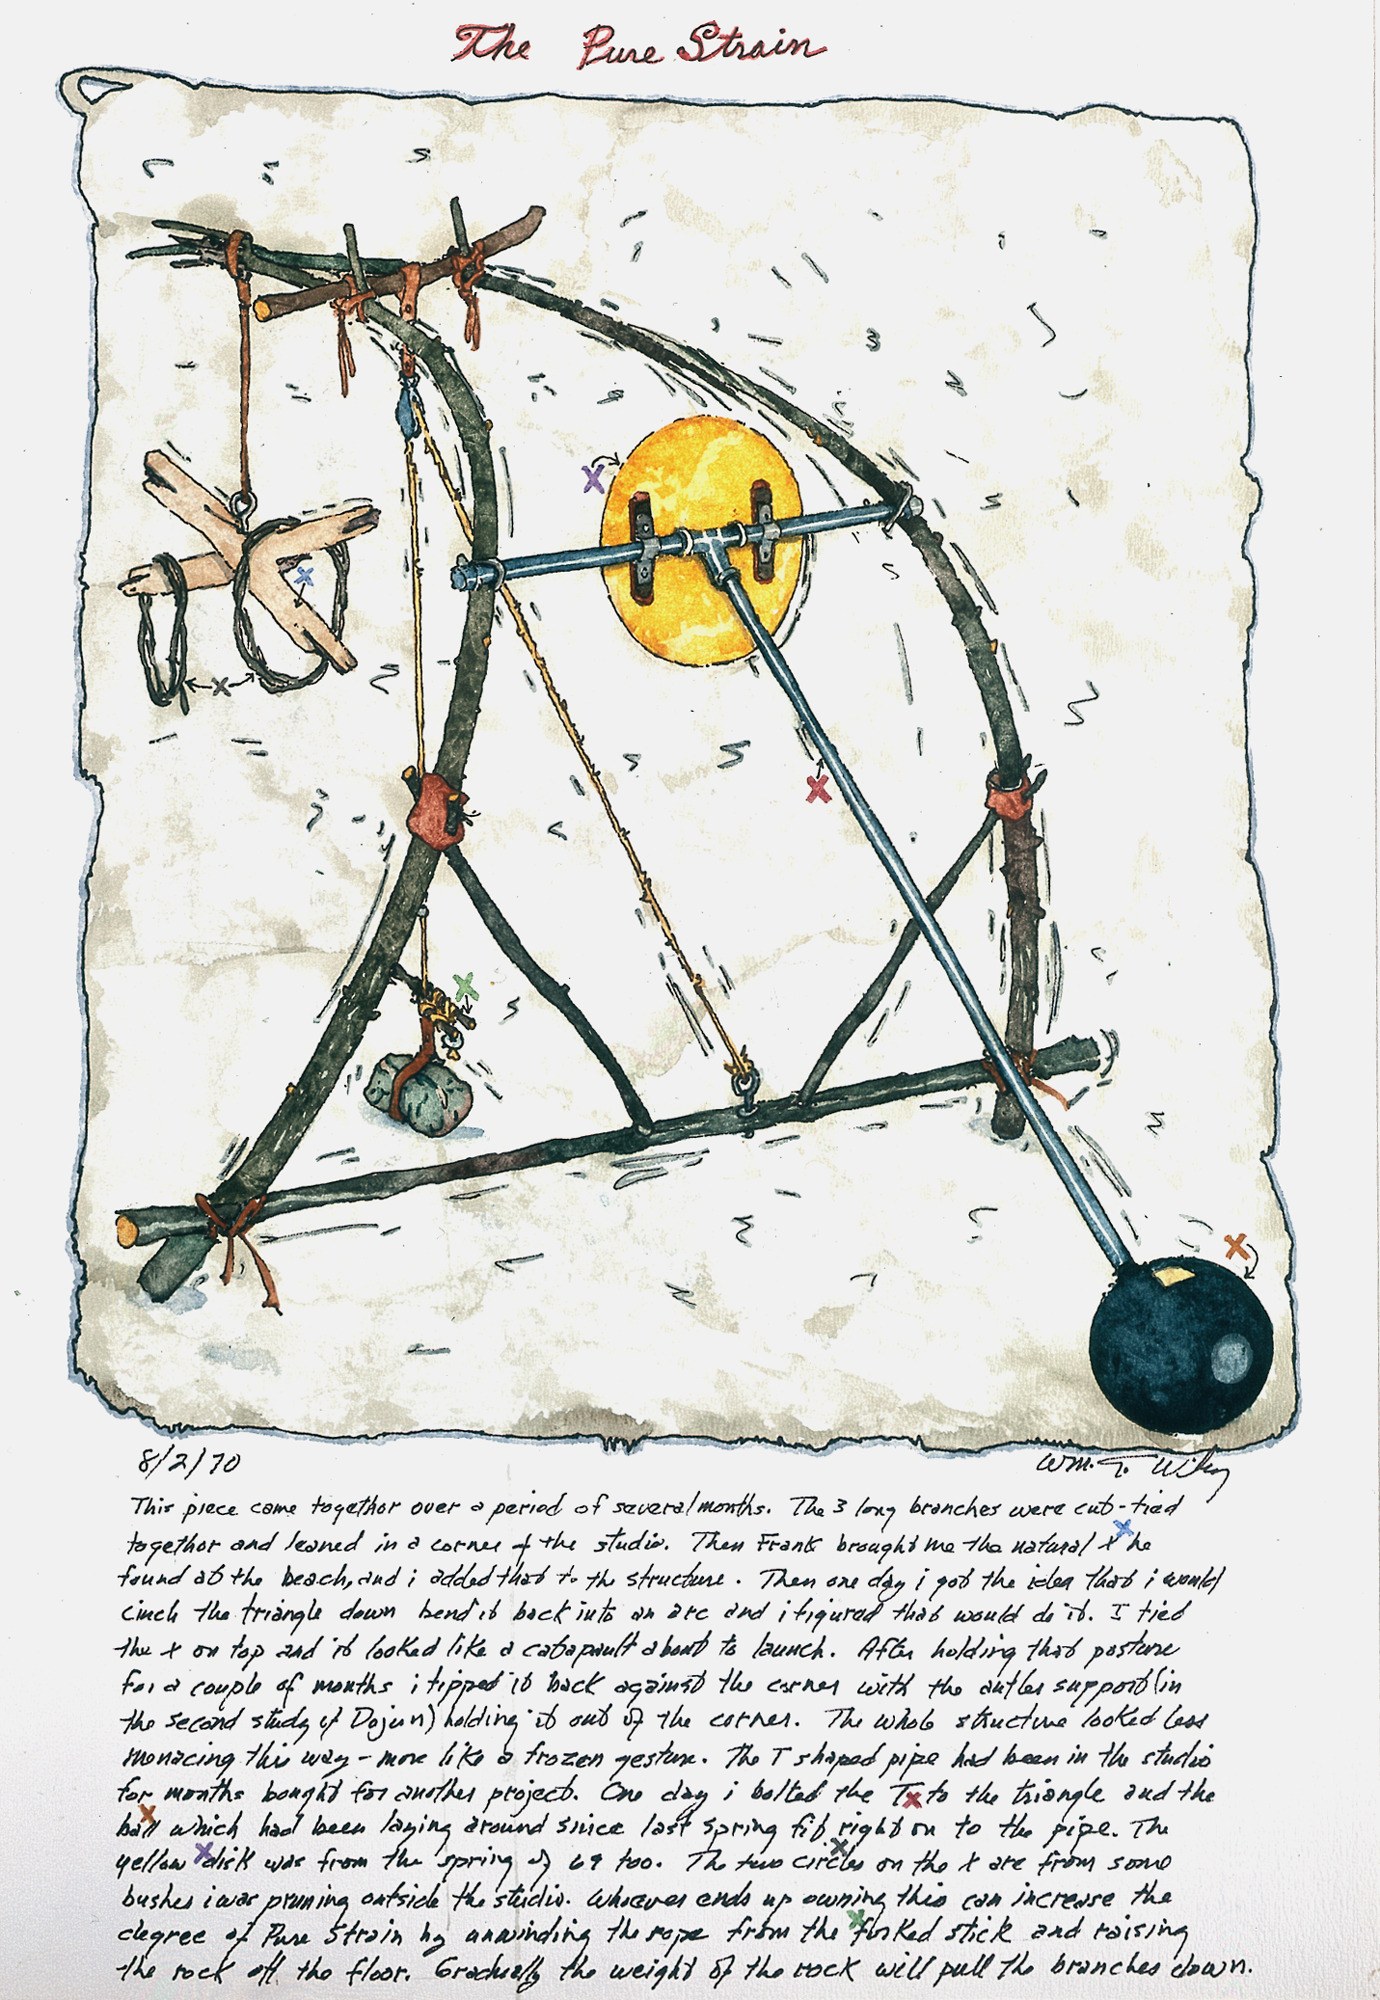 The Pure Strain
8/2/70
Wm. T. Wiley
This piece came together over a period of several months. The 3 long branches were cut-tied
together and leaned in a corner of the studio. Then Frank brought me the natural x he
found at the beach, and i added that to the structure. Then one day i got the idea that i would
cinch the triangle down bend it back into an arc and i figured that would do it. I tied
the x on top and it looked like a catapault about to launch. After holding that posture
for a couple of months i tipped it back against the corner with the antler support (in
the second study of Dojun) holding it out of the corner. The whole structure looked less
menacing this way - more like a frozen gesture. The T shaped pipe had been in the studio
for months bought for another project. One day i bolted the T to the triangle and the
ball which had been laying around since last spring fit right on to the pipe. The
yellow disk was from the spring of 69 too. The two circles on the x are from some
bushes i was pruning outside the studio. Whoever ends up owning this can increase the
degree of Pure Strain by unwinding the rope from the forked stick and raising
the rock off the floor. Gradually the weight of the rock will pull the branches down.